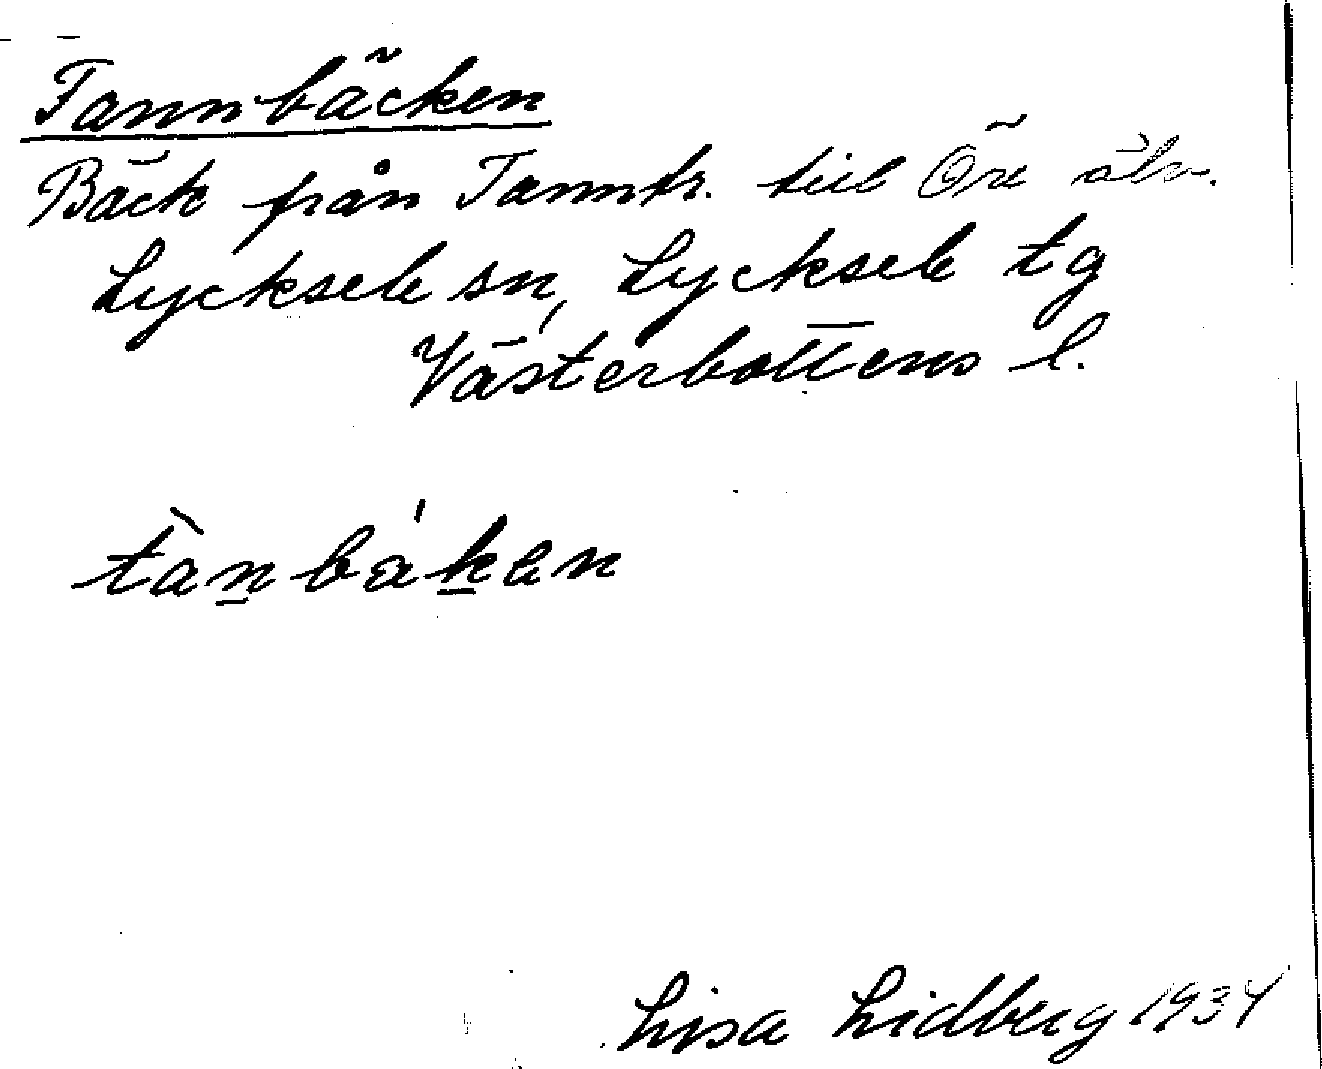 Tannbäcken
Bäck från Tanntr. till Öre älv.
Lycksele sn, Lycksele tg
Västerbottens l.
tànbákan
Lisa Lidberg 1934